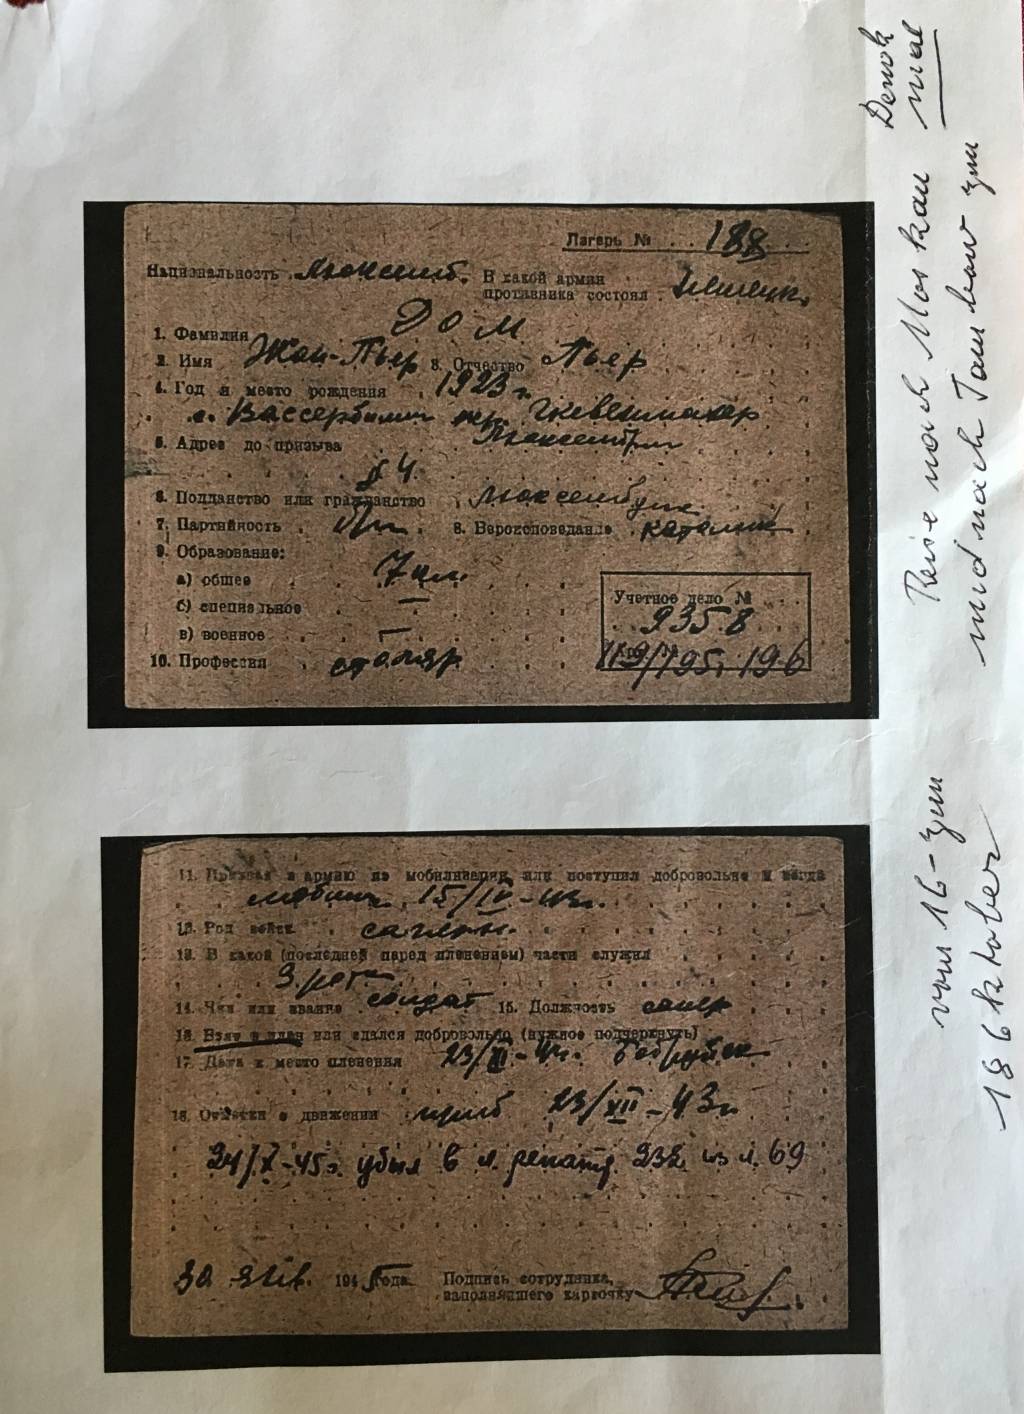 Лагерь № 188
Национальность Люксемб. В какой армии
противника состоял Немецк.
1. Фамилия Дом
2. Имя Жан-Пьер 3. Отчество Пьер
4. Год и место рождения 1923 г.
с. Вассербиллиг
5. Адрес до призыва Люксембург
№ 4.
6. Подданство или гражданство
7. Партийность 8. Вероисповедание католик
9. Образование:
а) общее 7 кл.
б) специальное —
в) военное —
10. Профессия столяр
Учетное дело №
9358
11. Призван в армию по мобилизации или поступил добровольно и когда
мобил. 15/IV-43г.
12. Род войск саперы.
13. В какой (последней перед пленением) части служил
14. Чин или звание солдат 15. Должность сапер
16. Взят в плен или сдался добровольно (нужное подчеркнуть)
17. Дата и место пленения Бобруйск
18. Отметки о движении приб 23/XII-43г.
24/X-45г. убыл в л. репатр. 232 из л. 69
30 янв. 1945 года. Подпись сотрудника,
заполнявшего карточку
Denk
mal
Reise nach Moskau
und nach Tambow zum
vom 16- zum
18 Oktober